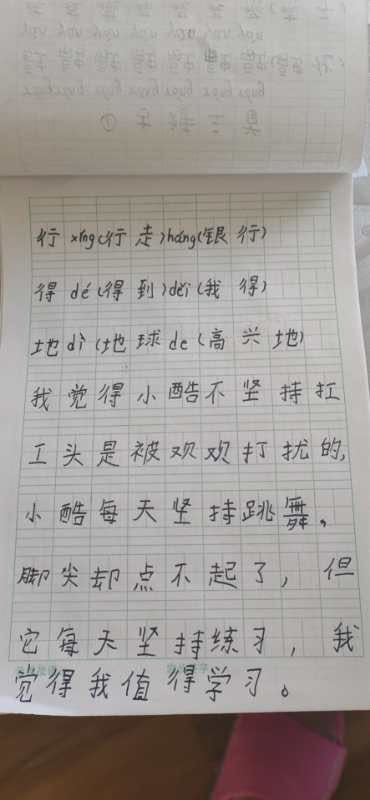 行 xíng(行走)háng(银行)
得 dé(得到)děi(我得)
地 dì(地球 de(高兴地)
我觉得小酷不坚持扛
工头是被欢欢打扰的,
小酷每天坚持跳舞。
脚尖却点不起了，但
它每天坚持练习，我
觉得我值得学习。